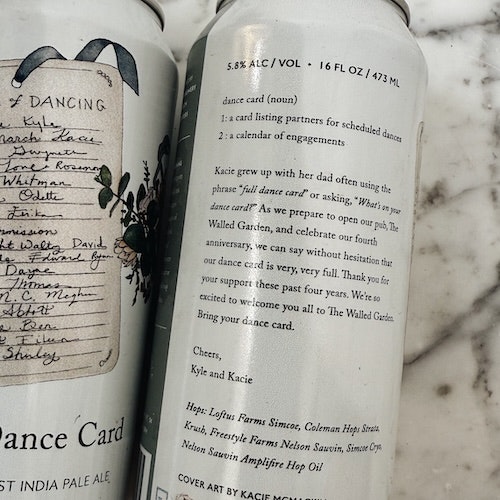 of DANCING
Kyle
March Kacie
Gwyneth
Rosenow
Whitman
Odette
Erika
mmission
ht Waltz David
Edward Ryan
Dayne
Thomas
M. C. Meghan
Abbott
Ben
Eileen
Shirley
Dance Card
ST INDIA PALE ALE
5.8% ALC / VOL • 16 FL OZ / 473 ML
dance card (noun)
1: a card listing partners for scheduled dances
2 : a calendar of engagements
Kacie grew up with her dad often using the
phrase "full dance card" or asking, "What's on your
dance card?" As we prepare to open our pub, The
Walled Garden, and celebrate our fourth
anniversary, we can say without hesitation that
our dance card is very, very full. Thank you for
your support these past four years. We're so
excited to welcome you all to The Walled Garden.
Bring your dance card.
Cheers,
Kyle and Kacie
Hops: Loftus Farms Simcoe, Coleman Hops Strata,
Krush, Freestyle Farms Nelson Sauvin, Simcoe Cryo,
Nelson Sauvin Amplifire Hop Oil
COVER ART BY KACIE